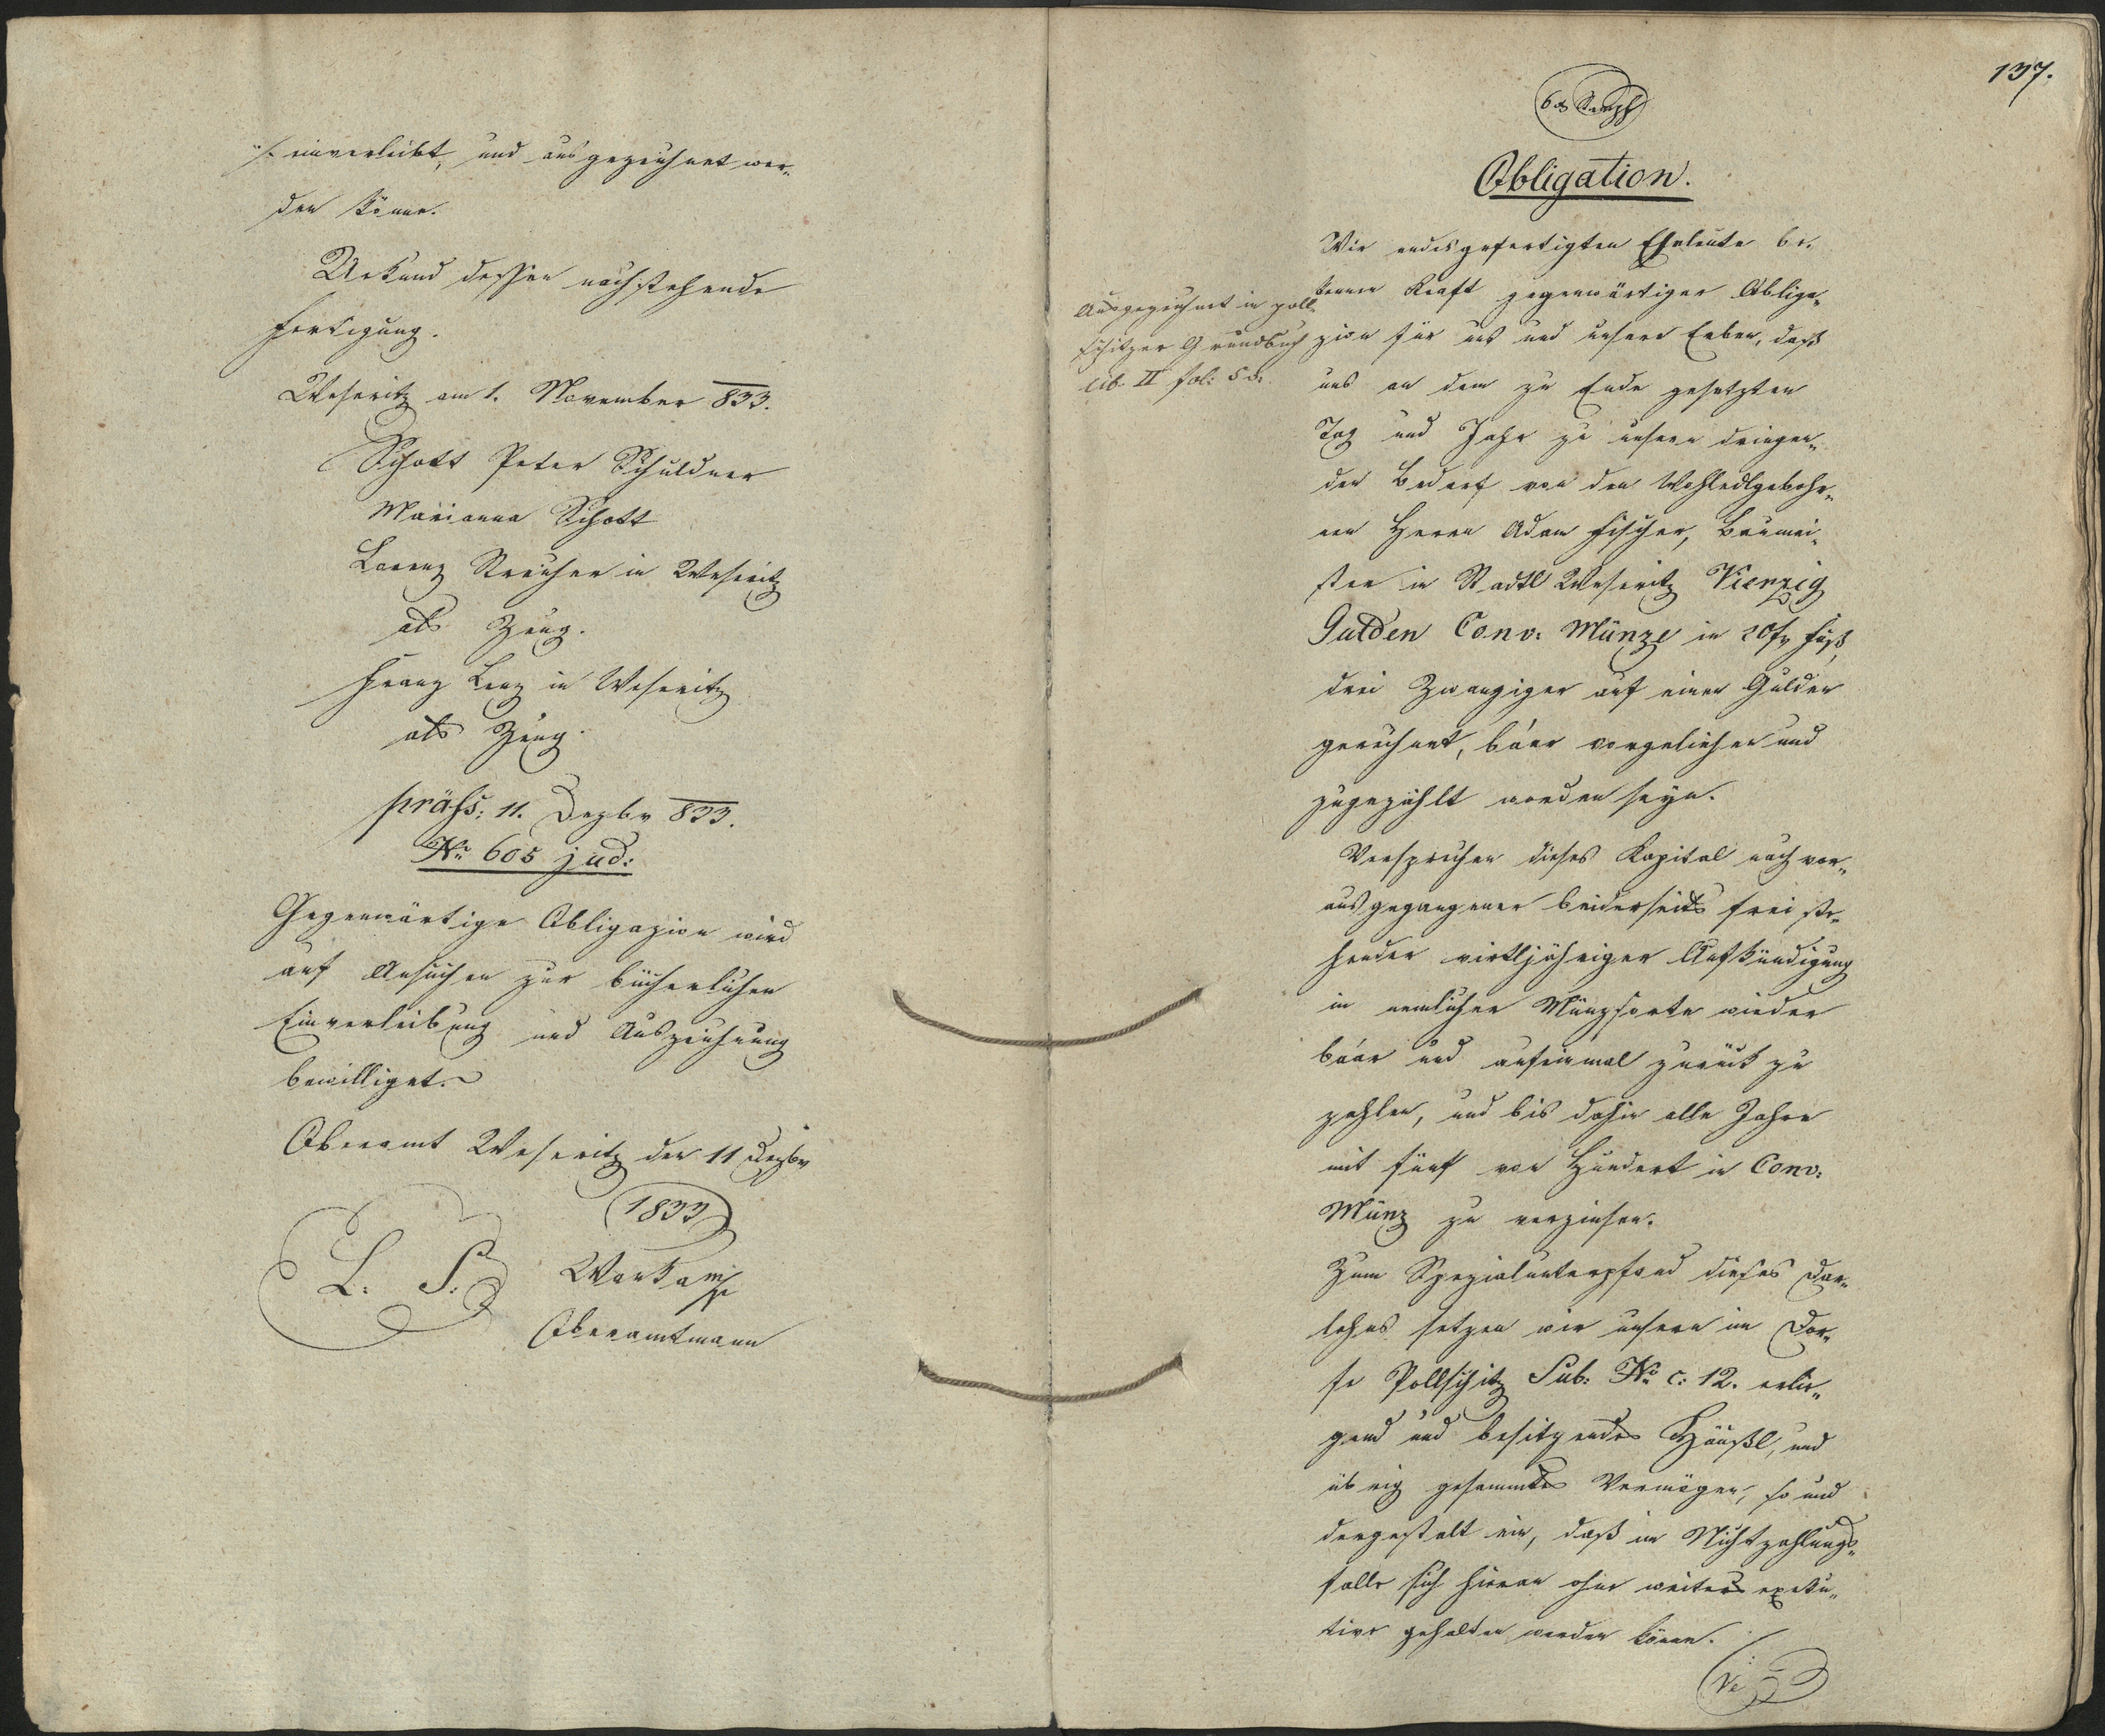 /: einverleibt, und ausgezeichnet wer-
den könne.
Urkund dessen nachstehende
Fertigung.
Weseritz am 1. November 833.
Schott Peter Schuldner
Marianna Schott
Lorenz Streicher in Weseritz
als Zeug.
Franz Lenz in Weseritz
als Zeug.
präs: 11. Dezbr 833.
No. 605 jud:
Gegenwärtige Obligazion wird
auf Ansuchen zur bücherlichen
Einverleibung und Auszeichnung
bewilliget.
Oberamt Weseritz den 11 Dezbr
1833
L. S.
Oberamtmann
137.
Obligation.
Wir endesgefertigten Eheleute be-
kennen Kraft gegenwärtiger Obliga-
zion für uns und unsere Erben, daß
uns an dem zu Ende gesetzten
Tag und Jahr zu unsern dringen-
den Bedarf von den Wohledlgebohr-
nen Herrn Adam Fischer, Baumei-
ster in Stadtl Weseritz Vierzig
Gulden Conv: Münze in 20fr Fuß,
drei Zwanziger auf einen Gulden
gerechnet, báar vorgeliehen und
zugezählt worden seyn.
Versprechen dieses Kapital nach vor-
ausgegangener beiderseits frei ste-
hender viertljähriger Aufkündigung
in nemlicher Münzsorte wieder
báar und aufeinmal zurück zu
zahlen, und bis dahin alle Jahre
mit fünf von Hundert in Conv:
Münz zu verzinsen.
Zum Spezialunterpfand dieses Dar-
lehns setzen wir unsern im Dor-
fe Pollschitz Sub: No. c: 12. erlie-
gend und besitzendes Häußl, und
übrig gesammtes Vermögen, so und
dergestalt ein, daß im Nichtzahlungs-
falle sich hieran ohne weiters exeku-
tive gehalten werden könne.
Ausgezeichnet in Poll-
schitzer Grundbuch
lib II fol: